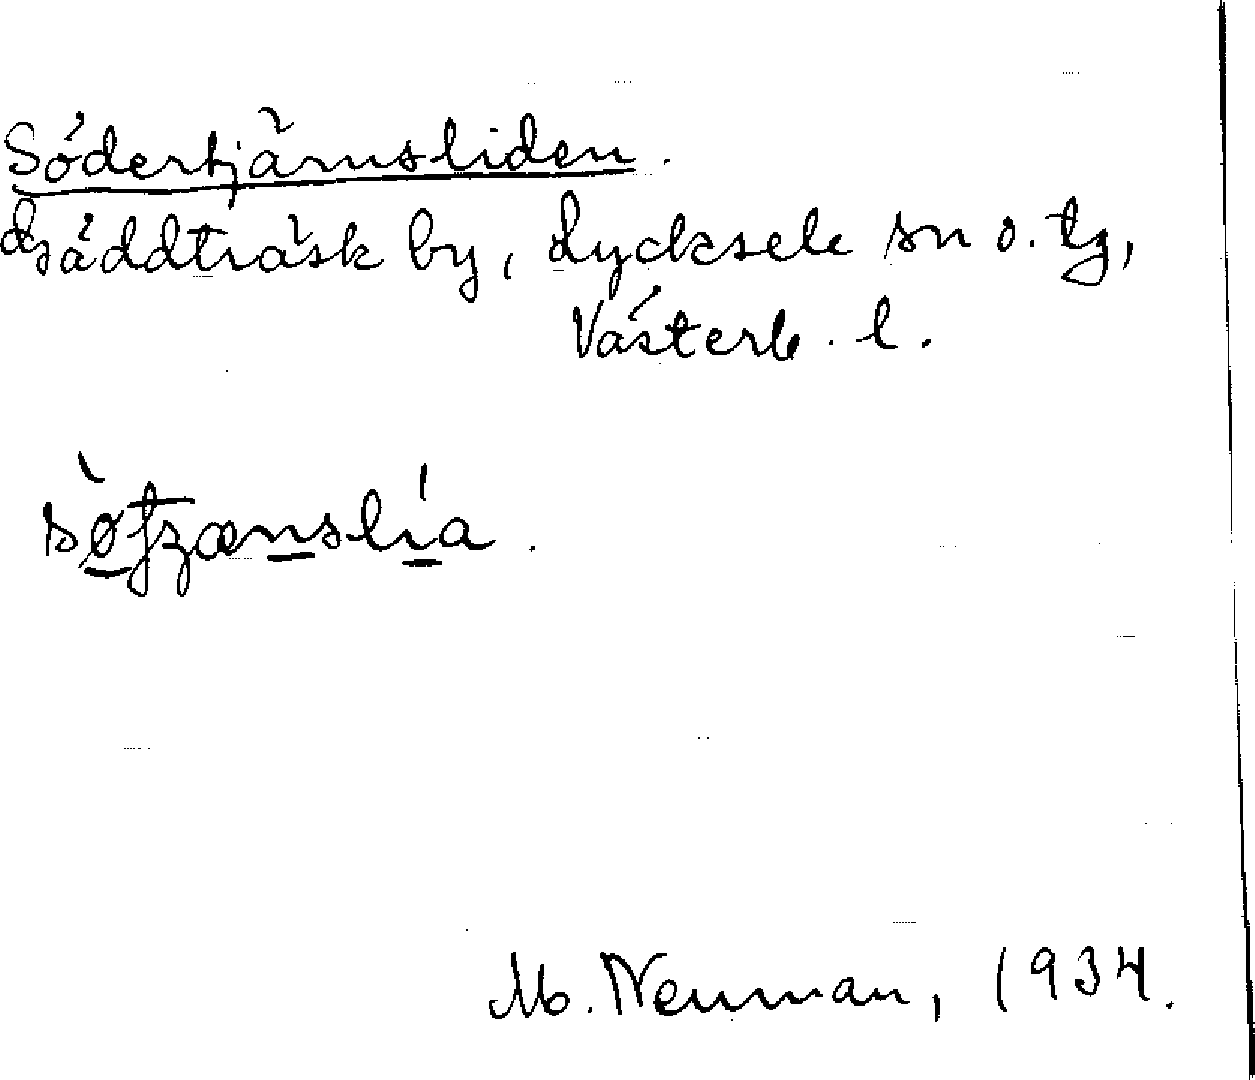 Södertjärnsliden.
Gäddträsk by, Lycksele sn o. tg,
Västerb. l.
M. Neuman, 1934.